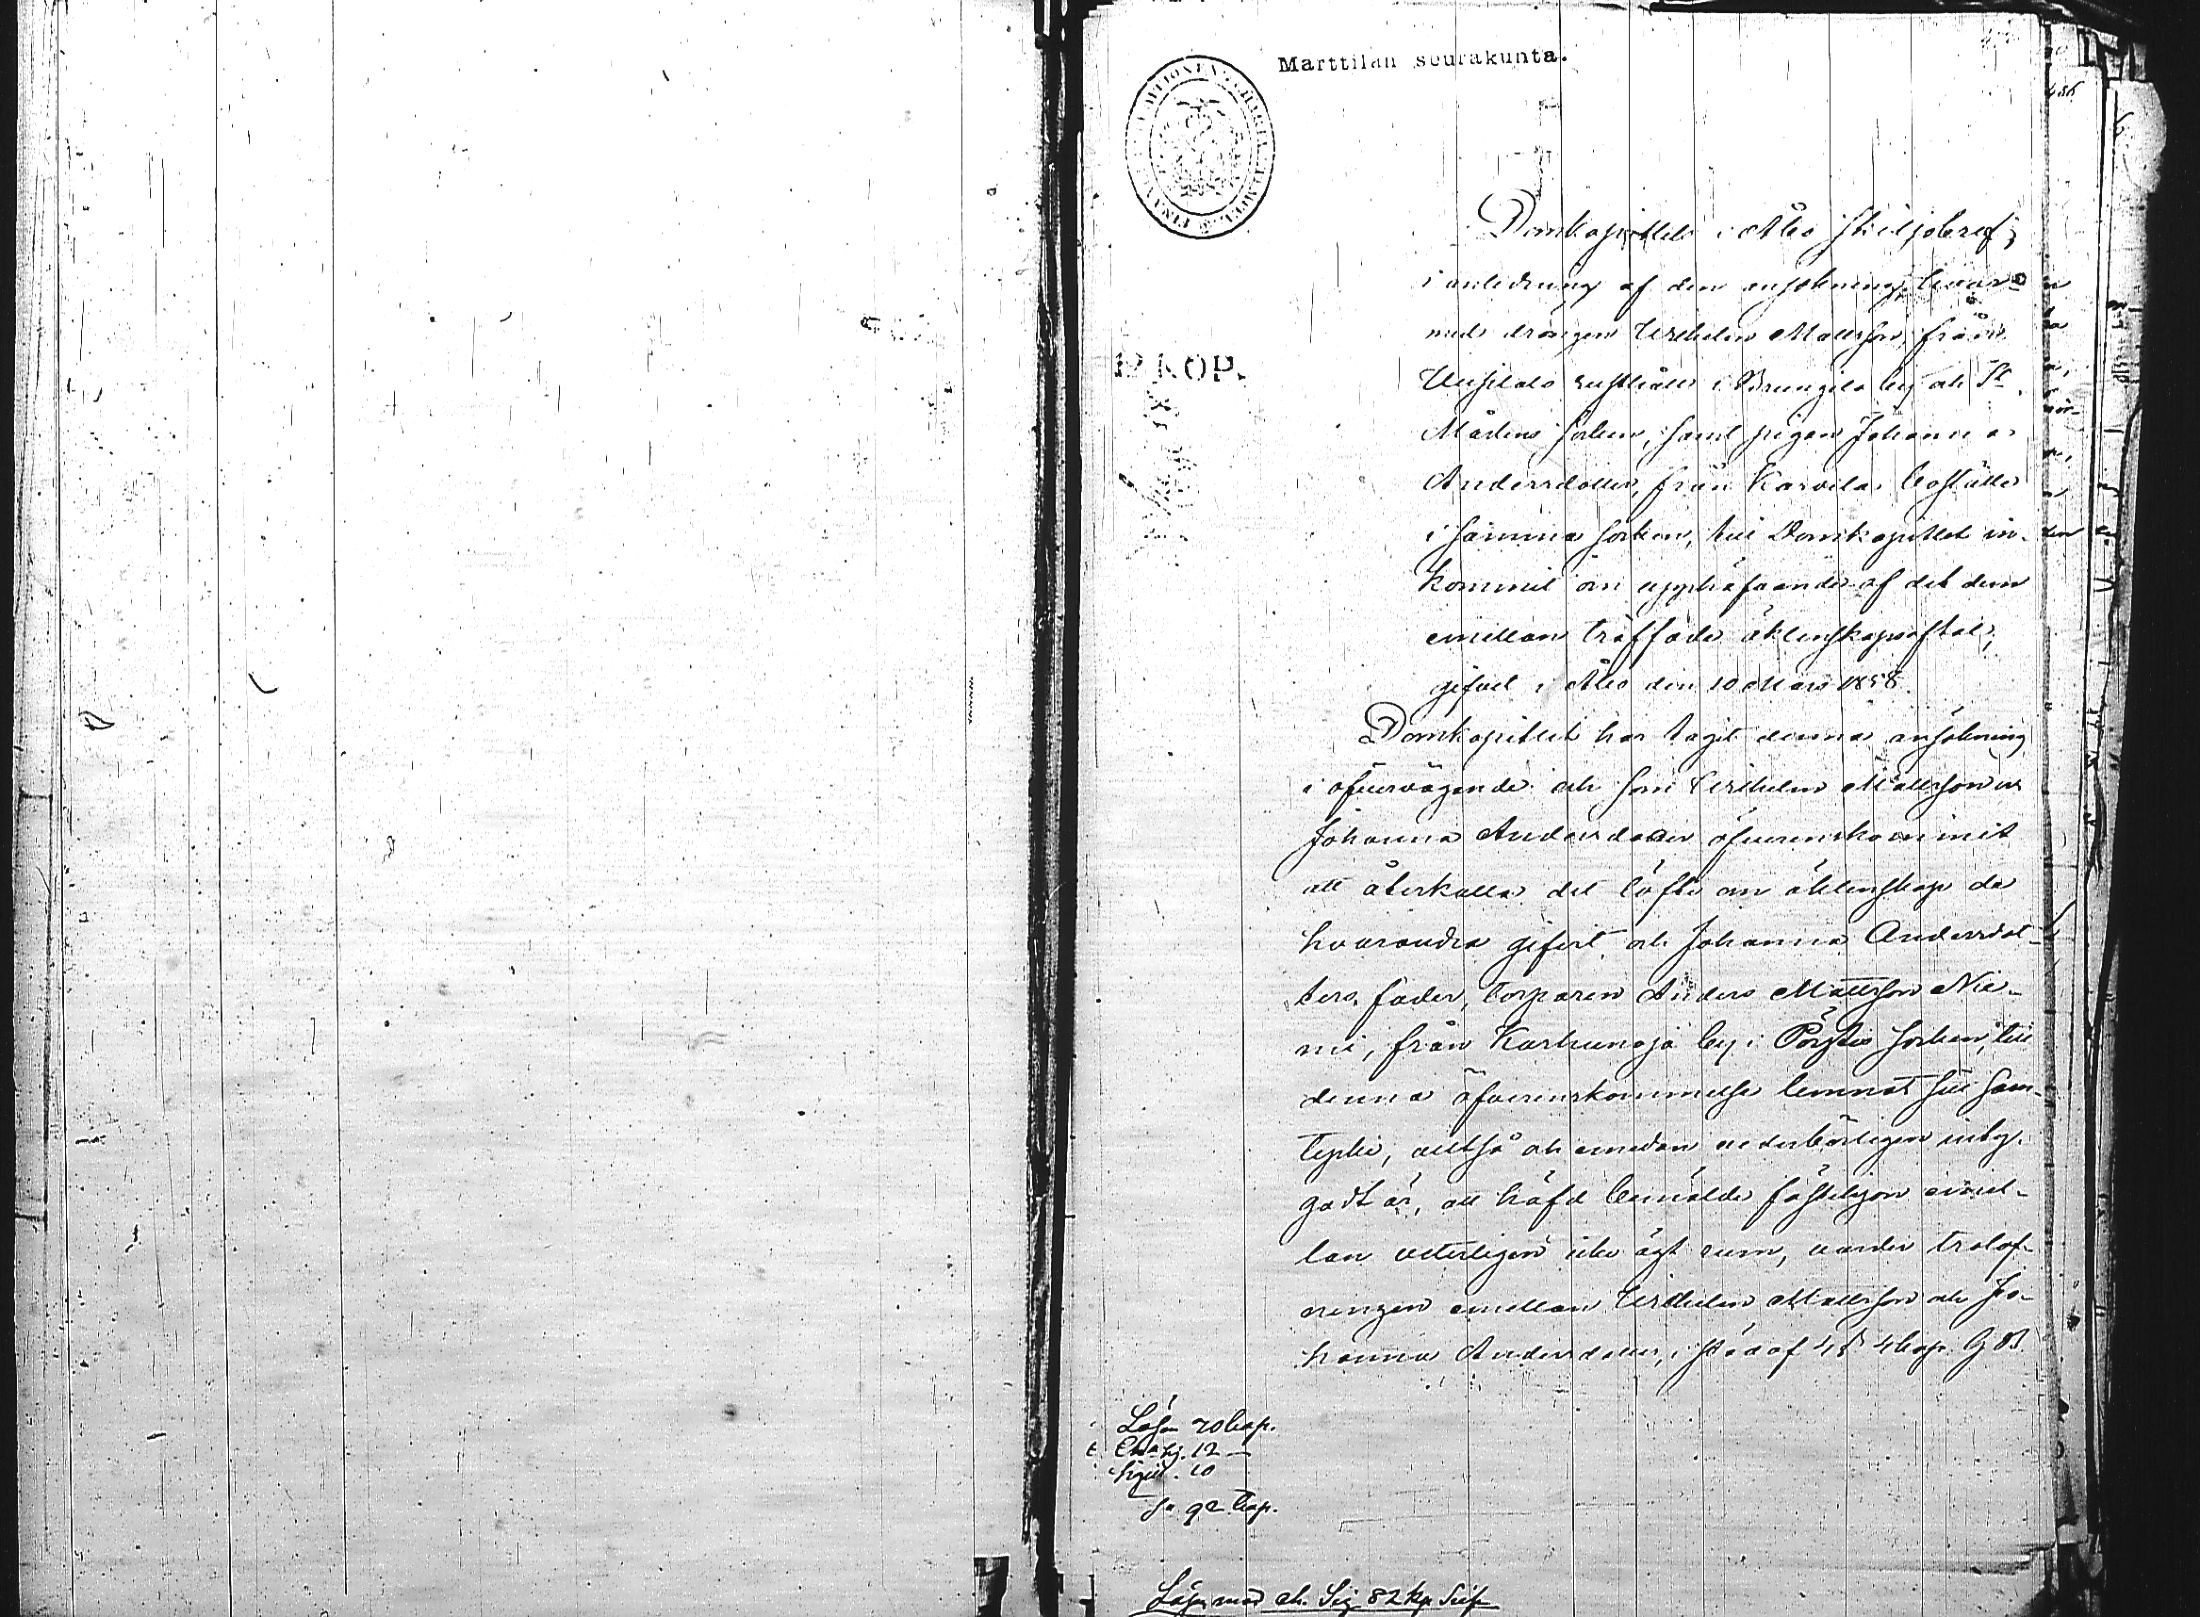 Marttilan seurakunta.
Domkapitlets i Åbo skiljobref,
i anledning af den ansökning, hvar-
med drängen Wilhelm Mattsson, från
Uusitalo rusthåll i Prungila by och St
Mårtens socken, samt pigan Johanna
Andersdotter, från Karvela boställe
i samma socken, till Domkapitlet in-
kommit om upphäfvande af det dem
emellan träffade äktenskapsaftal;
gifvet i Åbo den 10 Mars 1858.
Domkapitlet har tagit denna ansökning
i öfvervägande och som Wilhelm Mattsson och
Johanna Andersdotter öfverenskommit
att återkalla det löfte om äktenskap de
hvarandra gifvit och Johanna Andersdot-
ters fader, torparen Anders Mattsson Nie-
mi, från Karhunoja by i Pöytis socken, till
denna öfverenskommelse lemnat sitt sam-
tycke, alltså och emedan vederbörligen intyg-
gadt är, att häfd bemälde fästehjon emel-
lan veterligen icke ägt rum, varder trolof-
ningen emellan Wilhelm Mattsson och Jo-
hanna Andersdotter, i stöd af 4 § 4 kap. G B
12 KOP.
Lösen 70 kop.
Ch. afg. 12 —
Sigill. 10
S:a 92 kop.
Lösen med ch. Sig. 82 kp Silf